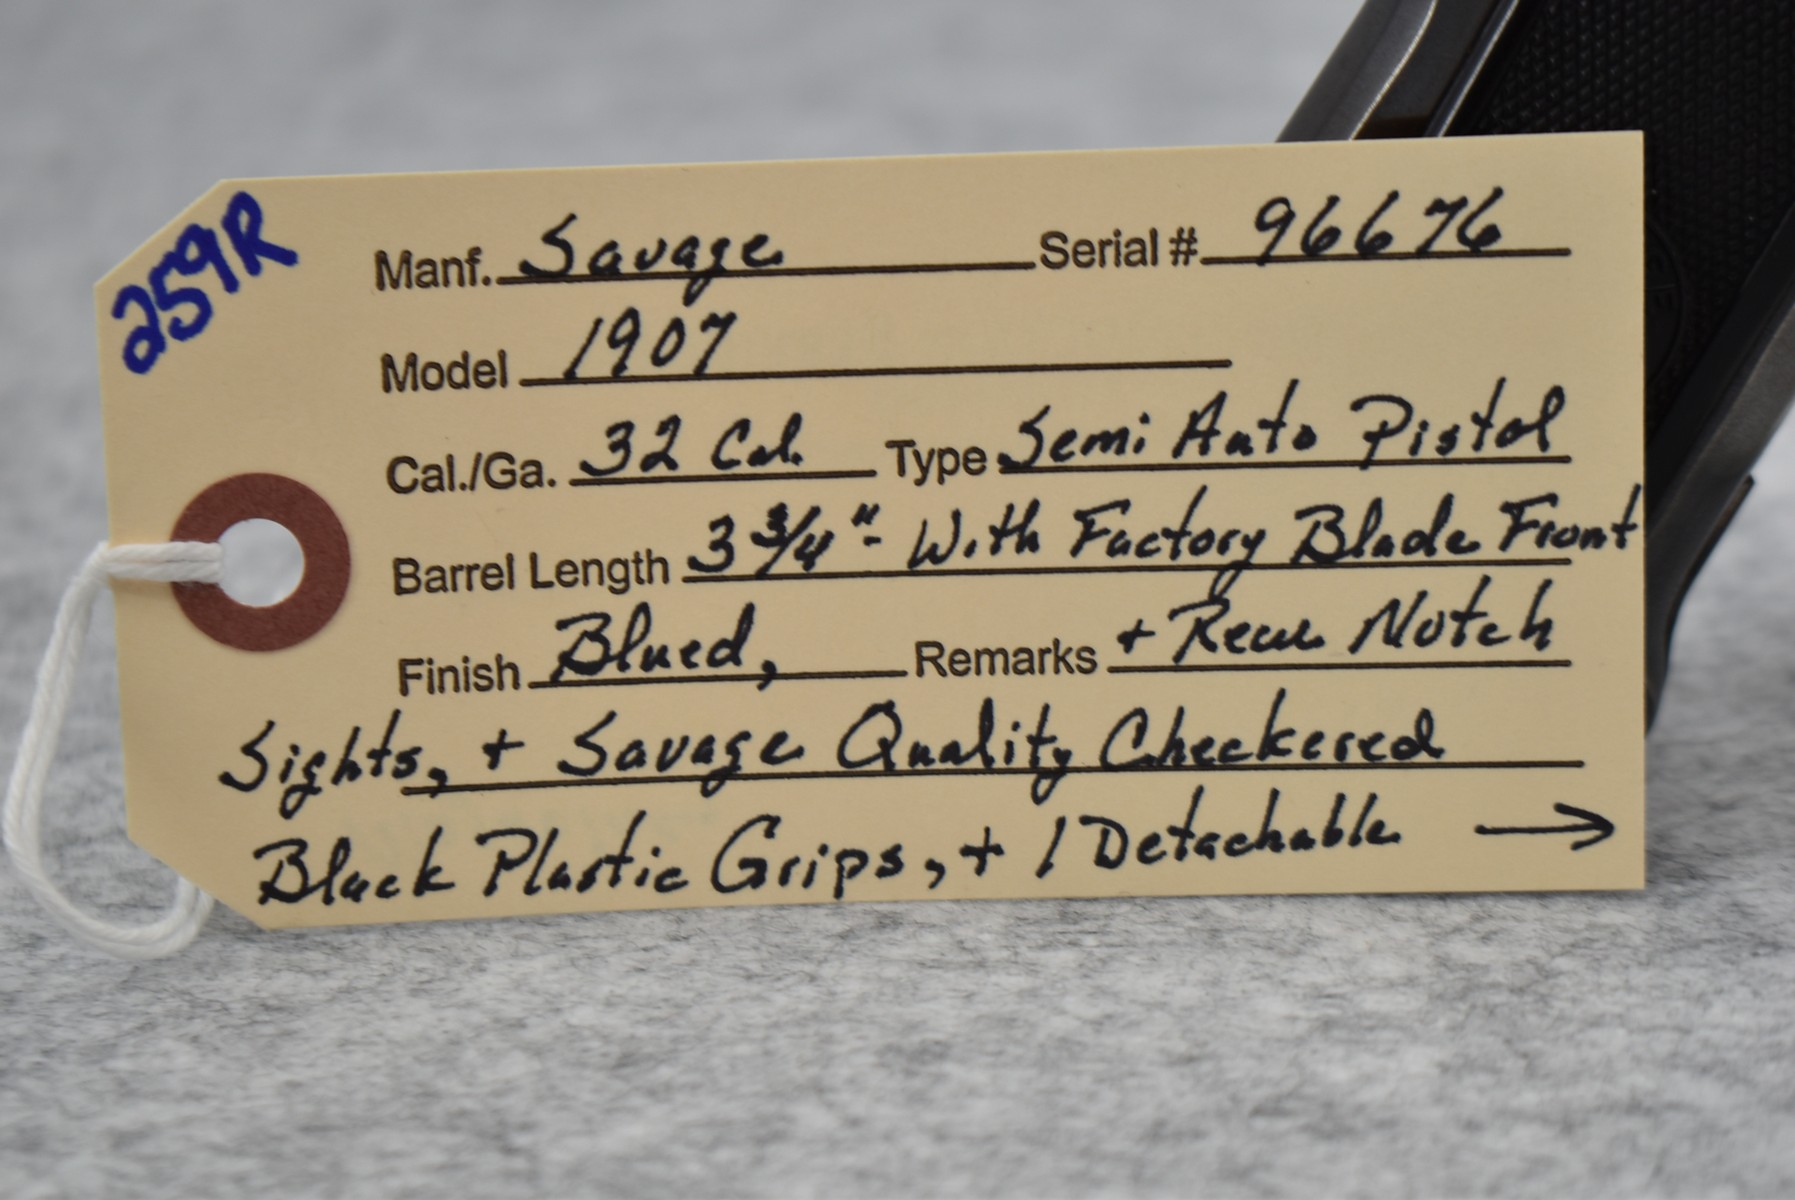 259R
Manf. Savage Serial # 96676
Model 1907
Cal./Ga. 32 Cal. Type Semi Auto Pistol
Barrel Length 3 3/4"- With Factory Blade Front
Finish Blued, Remarks + Rear Notch
Sights, + Savage Quality Checkered
Black Plastic Grips, + 1 Detachable →